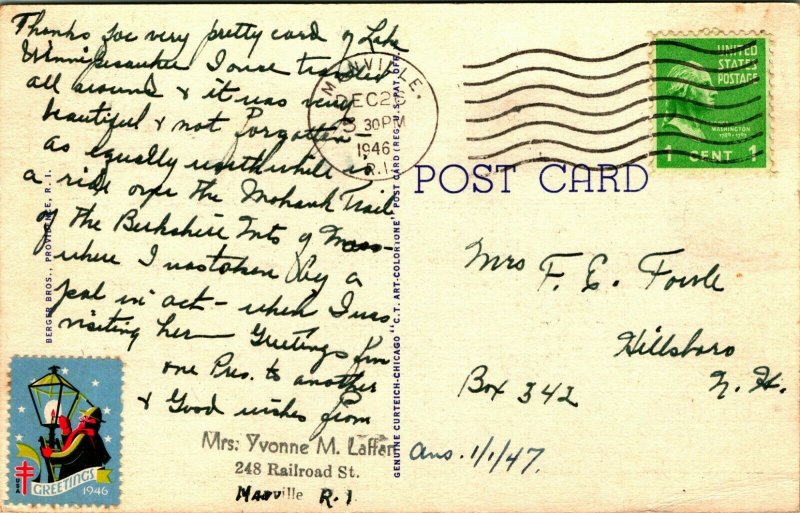 Thanks for very pretty card of Lake
Winnipesaukee I once traveled
all around & it was very
beautiful & not forgotten
as equally worthwhile is
a ride over the Mohawk Trail
of the Berkshire Mts of Mass-
where I was taken by a
pal in Oct - when I was
visiting her - Greetings from
one Pres. to another
& Good wishes from
Mrs. Yvonne M. Laffan
248 Railroad St.
Manville R. I.
BERGER BROS., PROVIDENCE, R. I.
GENUINE CURTEICH-CHICAGO "C.T. ART-COLORTONE" POST CARD (REG. U.S. PAT. OFF.
MANVILLE.
DEC 2
30 PM
1946
R.I.
UNITED
STATES
POSTAGE
WASHINGTON
1789-1797
1 CENT 1
POST CARD
Mrs F. E. Fowle
Hillsboro
Box 342 N. H.
Ans. 1/1/47.
USA
GREETINGS
1946